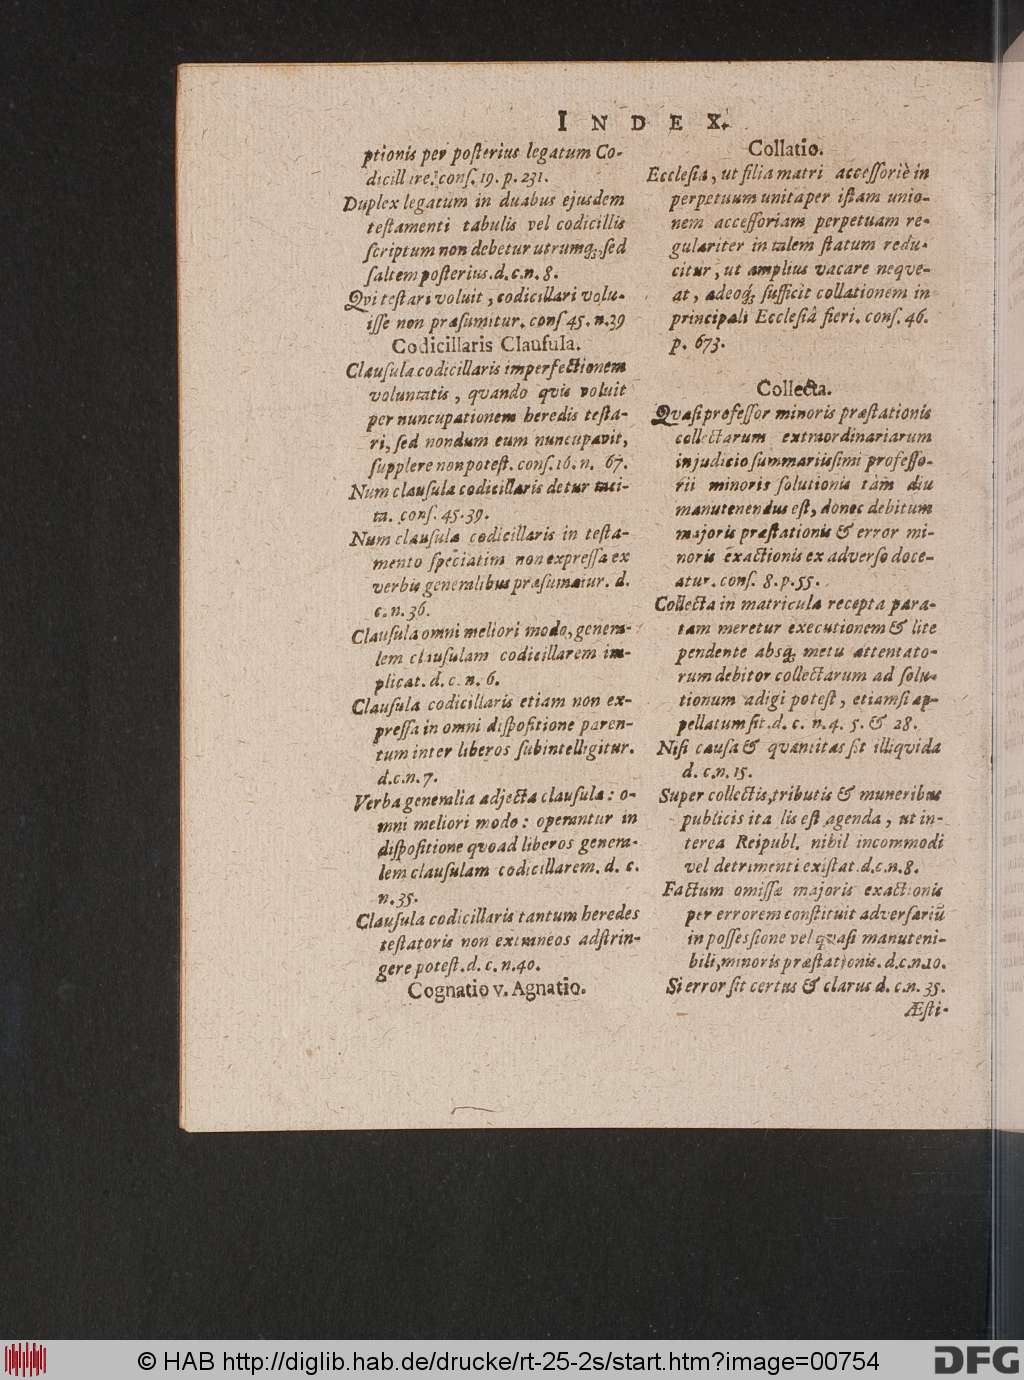 INDEX.
ptionis per posterius legatum Co-
dicillare. cons. 19. p. 231.
Duplex legatum in duabus ejusdem
testamenti tabulis vel codicillis
scriptum non debetur utrumq;, sed
saltem posterius. d. c. n. 8.
Qvi testari voluit, codicillari volu-
isse non præsumitur. cons 45. n. 39
Codicillaris Clausula.
Clausula codicillaris imperfectionem
voluntatis, qvando qvis voluit
per nuncupationem heredis testa-
ri, sed nondum eum nuncupavit,
supplere non potest. cons. 16. n. 67.
Num clausula codicillaris detur taci-
ta. cons. 45. 39.
Num clausula codicillaris in testa-
mento speciatim non expressa ex
verbis generalibus præsumatur. d.
c. n. 36.
Clausula omni meliori modo, genera-
lem clausulam codicillarem im-
plicat. d. c. n. 6.
Clausula codicillaris etiam non ex-
pressa in omni dispositione paren-
tum inter liberos subintelligitur.
d. c. n. 7.
Verba generalia adjecta clausula: o-
mni meliori modo: operantur in
dispositione qvoad liberos genera-
lem clausulam codicillarem. d. c.
n. 35.
Clausula codicillaris tantum heredes
testatoris non extraneos adstrin-
gere potest. d. c. n. 40.
Cognatio v. Agnatio.
Collatio.
Ecclesia, ut filia matri accessoriè in
perpetuum unita per istam unio-
nem accessoriam perpetuam re-
gulariter in talem statum redu-
citur, ut amplius vacare neqve-
at, adeoq; sufficit collationem in
principali Ecclesiâ fieri. cons. 46.
p. 673.
Collecta.
Qvasi professor minoris præstationis
collectarum extraordinariarum
in judicio summariissimi professo-
rii minoris solutionis tam diu
manutenendus est, donec debitum
majoris præstationis & error mi-
noris exactionis ex adverso doce-
atur. cons. 8. p. 55.
Collecta in matricula recepta para-
tam meretur executionem & lite
pendente absq; metu attentato-
rum debitor collectarum ad solu-
tionum adigi potest, etiamsi ap-
pellatum sit. d. c. n. 4. 5. & 28.
Nisi causa & qvantitas sit illiqvida
d. c. n. 15.
Super collectis, tributis & muneribus
publicis ita lis est agenda, ut in-
terea Reipubl. nihil incommodi
vel detrimenti existat. d. c. n. 8.
Factum omissæ majoris exactionis
per errorem constituit adversariū
in possessione vel qvasi manuteni-
bili, minoris præstationis. d. c. n. 10.
Si error sit certus & clarus d. c. n. 35.
Æsti-
© HAB http://diglib.hab.de/drucke/rt-25-2s/start.htm?image=00754
DFG